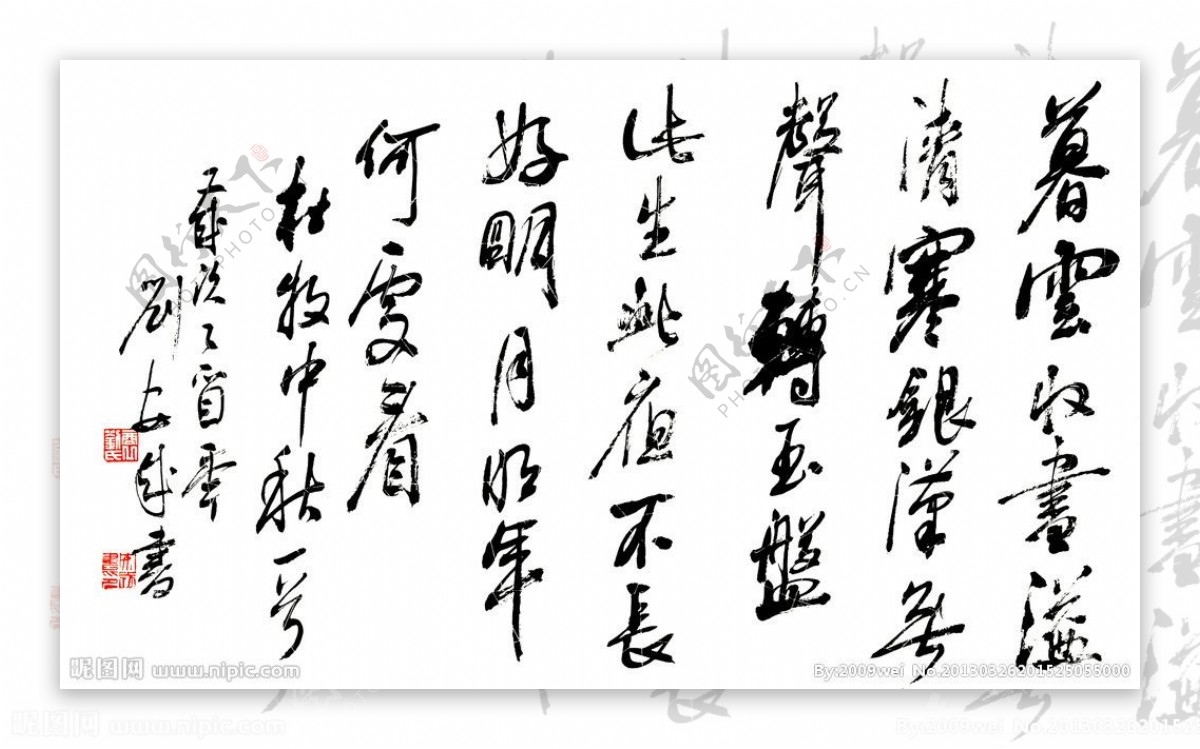 暮雲收盡溢
清寒銀漢無
聲轉玉盤
此生此夜不長
好明月明年
何處看
杜牧中秋一
歲次乙酉
劉安成書
昵图网 www.nipic.com
By:2009wei No.20130326201525055000